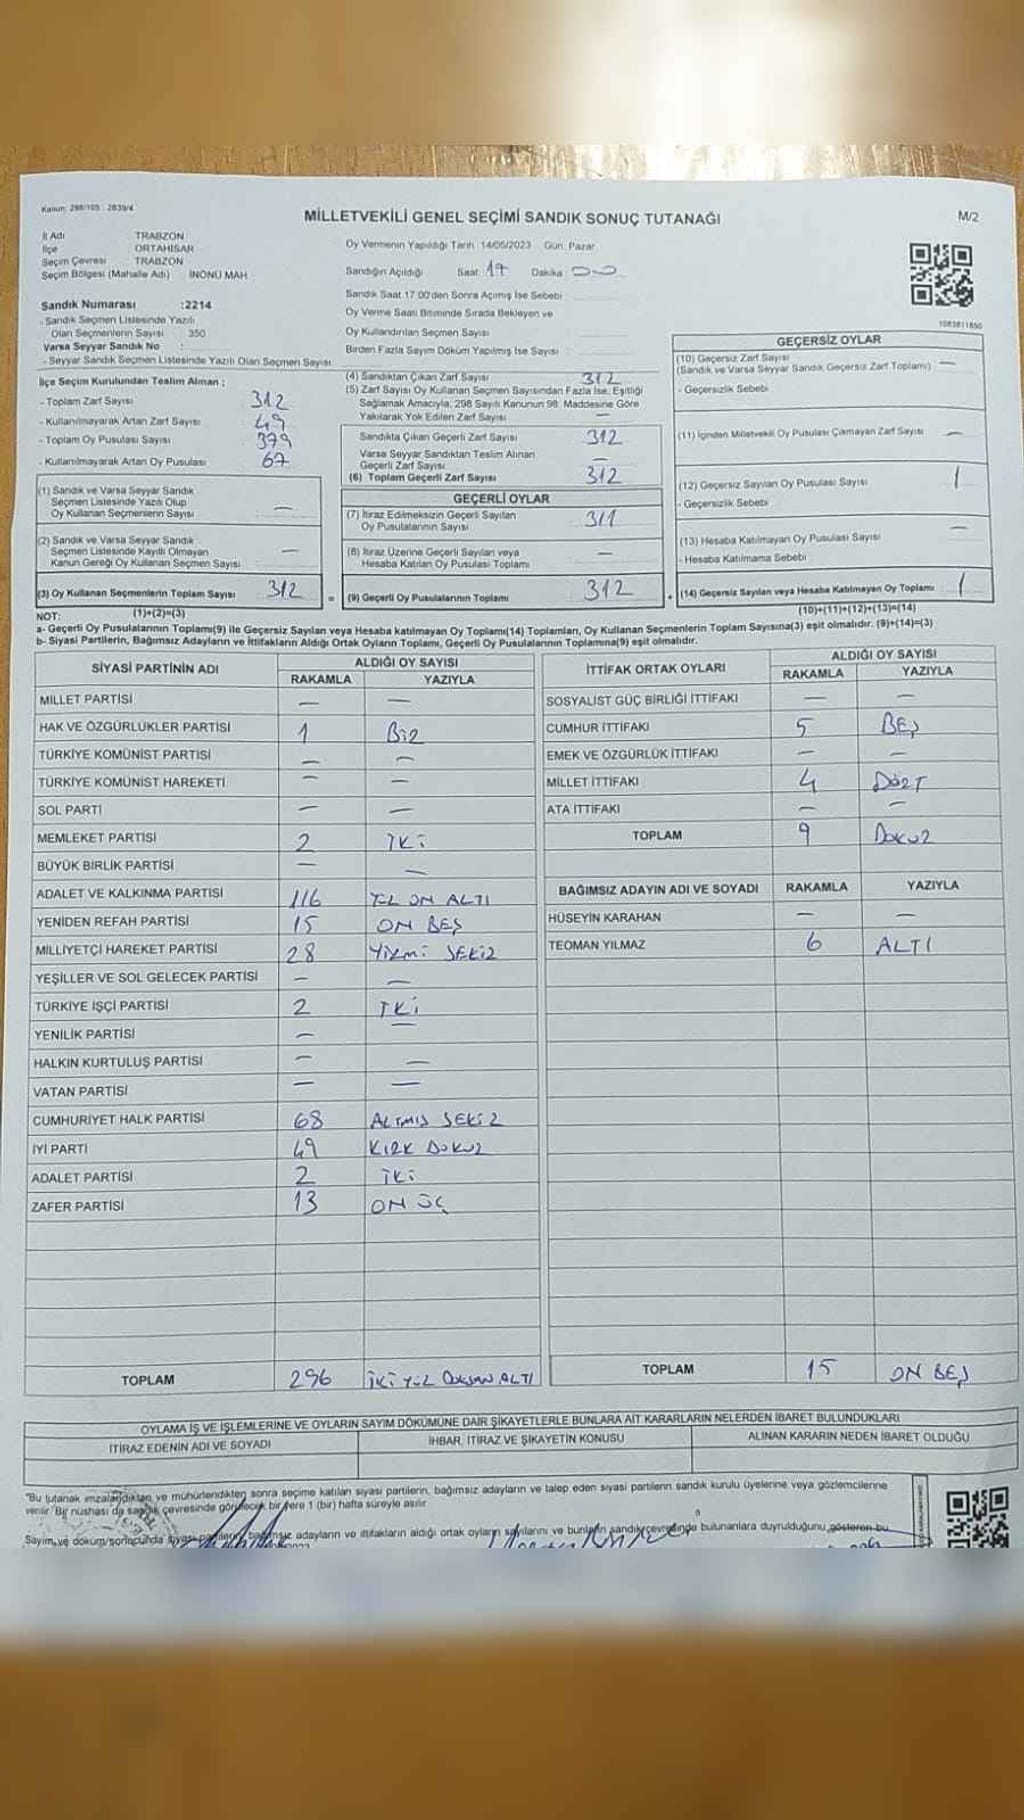 Kanun: 298/105 : 2839/4
MİLLETVEKİLİ GENEL SEÇİMİ SANDIK SONUÇ TUTANAĞI
M/2
İl Adı TRABZON
İlçe ORTAHİSAR
Seçim Çevresi TRABZON
Seçim Bölgesi (Mahalle Adı) İNÖNÜ MAH
Sandık Numarası :2214
- Sandık Seçmen Listesinde Yazılı
Olan Seçmenlerin Sayısı : 350
Varsa Seyyar Sandık No :
- Seyyar Sandık Seçmen Listesinde Yazılı Olan Seçmen Sayısı
Oy Vermenin Yapıldığı Tarih 14/05/2023 Gün: Pazar
Sandığın Açıldığı Saat: 17 Dakika 00
Sandık Saat 17:00'den Sonra Açılmış İse Sebebi
Oy Verme Saati Bitiminde Sırada Bekleyen ve
Oy Kullandırılan Seçmen Sayısı
Birden Fazla Sayım Döküm Yapılmış İse Sayısı
1083811650
İlçe Seçim Kurulundan Teslim Alınan ;
- Toplam Zarf Sayısı 312
- Kullanılmayarak Artan Zarf Sayısı 49
- Toplam Oy Pusulası Sayısı 379
- Kullanılmayarak Artan Oy Pusulası 67
(1) Sandık ve Varsa Seyyar Sandık
Seçmen Listesinde Yazılı Olup
Oy Kullanan Seçmenlerin Sayısı —
(2) Sandık ve Varsa Seyyar Sandık
Seçmen Listesinde Kayıtlı Olmayan
Kanun Gereği Oy Kullanan Seçmen Sayısı —
(3) Oy Kullanan Seçmenlerin Toplam Sayısı 312
(1)+(2)=(3)
(4) Sandıktan Çıkan Zarf Sayısı 312
(5) Zarf Sayısı Oy Kullanan Seçmen Sayısından Fazla İse, Eşitliği
Sağlamak Amacıyla, 298 Sayılı Kanunun 98. Maddesine Göre
Yakılarak Yok Edilen Zarf Sayısı —
Sandıkta Çıkan Geçerli Zarf Sayısı 312
Varsa Seyyar Sandıktan Teslim Alınan
Geçerli Zarf Sayısı —
(6) Toplam Geçerli Zarf Sayısı 312
GEÇERLİ OYLAR
(7) İtiraz Edilmeksizin Geçerli Sayılan
Oy Pusulalarının Sayısı 311
(8) İtiraz Üzerine Geçerli Sayılan veya
Hesaba Katılan Oy Pusulası Toplamı —
= (9) Geçerli Oy Pusulalarının Toplamı 312
GEÇERSİZ OYLAR
(10) Geçersiz Zarf Sayısı
(Sandık ve Varsa Seyyar Sandık Geçersiz Zarf Toplamı) —
- Geçersizlik Sebebi
(11) İçinden Milletvekili Oy Pusulası Çıkmayan Zarf Sayısı —
(12) Geçersiz Sayılan Oy Pusulası Sayısı 1
- Geçersizlik Sebebi
(13) Hesaba Katılmayan Oy Pusulası Sayısı —
- Hesaba Katılmama Sebebi
+ (14) Geçersiz Sayılan veya Hesaba Katılmayan Oy Toplamı 1
(10)+(11)+(12)+(13)=(14)
NOT:
a- Geçerli Oy Pusulalarının Toplamı(9) ile Geçersiz Sayılan veya Hesaba katılmayan Oy Toplamı(14) Toplamları, Oy Kullanan Seçmenlerin Toplam Sayısına(3) eşit olmalıdır. (9)+(14)=(3)
b- Siyasi Partilerin, Bağımsız Adayların ve İttifakların Aldığı Ortak Oyların Toplamı, Geçerli Oy Pusulalarının Toplamına(9) eşit olmalıdır.
SİYASİ PARTİNİN ADI ALDIĞI OY SAYISI
RAKAMLA YAZIYLA
MİLLET PARTİSİ — —
HAK VE ÖZGÜRLÜKLER PARTİSİ 1 Bir
TÜRKİYE KOMÜNİST PARTİSİ — —
TÜRKİYE KOMÜNİST HAREKETİ — —
SOL PARTİ — —
MEMLEKET PARTİSİ 2 İKİ
BÜYÜK BİRLİK PARTİSİ — —
ADALET VE KALKINMA PARTİSİ 116 YÜZ ON ALTI
YENİDEN REFAH PARTİSİ 15 ON BEŞ
MİLLİYETÇİ HAREKET PARTİSİ 28 YİRMİ SEKİZ
YEŞİLLER VE SOL GELECEK PARTİSİ — —
TÜRKİYE İŞÇİ PARTİSİ 2 İKİ
YENİLİK PARTİSİ — —
HALKIN KURTULUŞ PARTİSİ — —
VATAN PARTİSİ — —
CUMHURİYET HALK PARTİSİ 68 ALTMIŞ SEKİZ
İYİ PARTİ 49 KIRK DOKUZ
ADALET PARTİSİ 2 İKİ
ZAFER PARTİSİ 13 ON ÜÇ
TOPLAM 296 İKİ YÜZ DOKSAN ALTI
İTTİFAK ORTAK OYLARI ALDIĞI OY SAYISI
RAKAMLA YAZIYLA
SOSYALİST GÜÇ BİRLİĞİ İTTİFAKI — —
CUMHUR İTTİFAKI 5 BEŞ
EMEK VE ÖZGÜRLÜK İTTİFAKI — —
MİLLET İTTİFAKI 4 DÖRT
ATA İTTİFAKI — —
TOPLAM 9 Dokuz
BAĞIMSIZ ADAYIN ADI VE SOYADI RAKAMLA YAZIYLA
HÜSEYİN KARAHAN — —
TEOMAN YILMAZ 6 ALTI
TOPLAM 15 ON BEŞ
OYLAMA İŞ VE İŞLEMLERİNE VE OYLARIN SAYIM DÖKÜMÜNE DAİR ŞİKAYETLERLE BUNLARA AİT KARARLARIN NELERDEN İBARET BULUNDUKLARI
İTİRAZ EDENİN ADI VE SOYADI İHBAR, İTİRAZ VE ŞİKAYETİN KONUSU ALINAN KARARIN NEDEN İBARET OLDUĞU
"Bu tutanak imzalandıktan ve mühürlendikten sonra seçime katılan siyasi partilerin, bağımsız adayların ve talep eden siyasi partilerin sandık kurulu üyelerine veya gözlemcilerine
verilir. Bir nüshası da sandık çevresinde görülecek bir yere 1 (bir) hafta süreyle asılır
Sayım ve döküm sonucunda siyasi partilerin, bağımsız adayların ve ittifakların aldığı ortak oyların sayılarını ve bunların sandık çevresinde bulunanlara duyrulduğunu gösteren bu